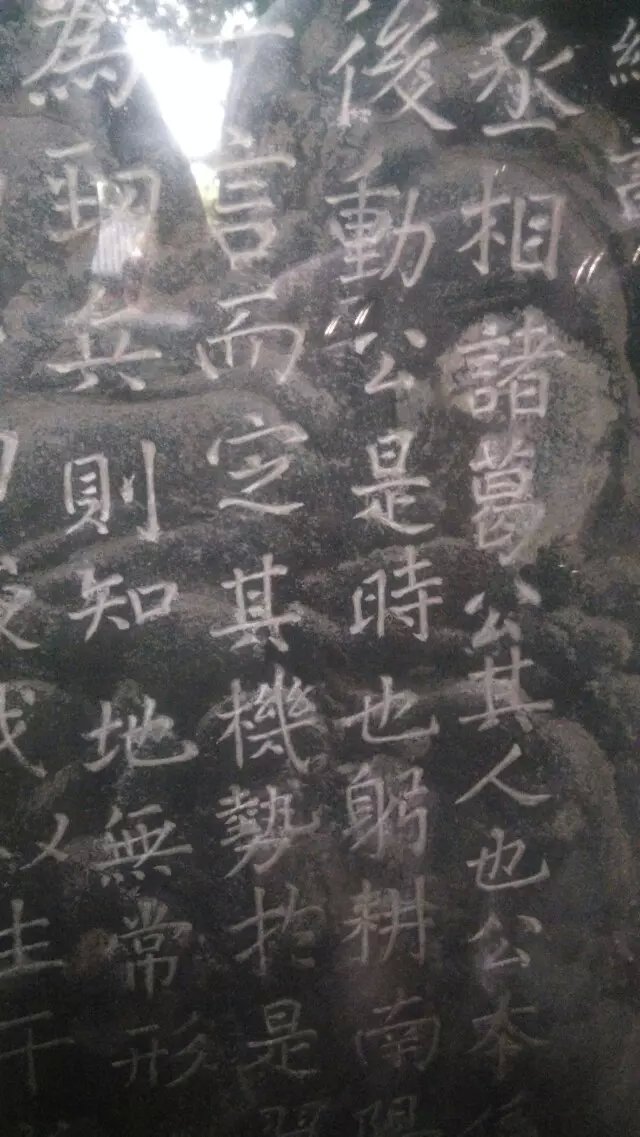 丞相諸葛公其人也公本
後動公是時也躬耕南陽
一言而定其機勢於是
為
兵則知地無常形